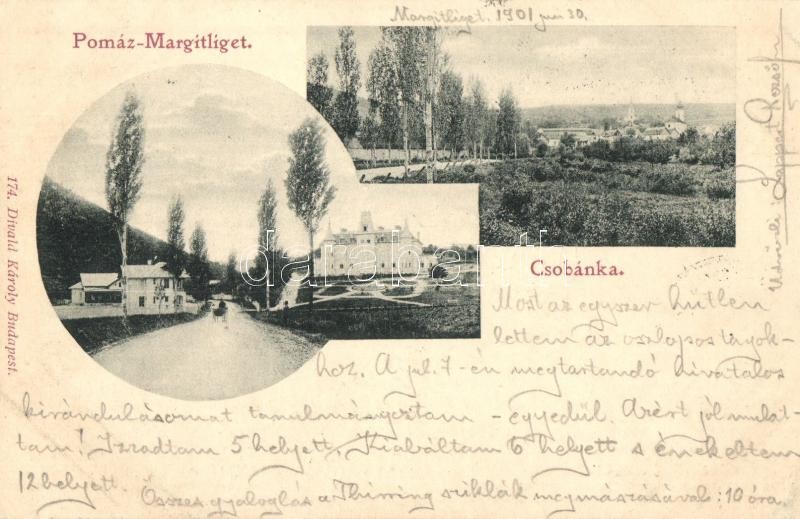 Margitliget. 1901 jun 30.
Pomáz-Margitliget.
Csobánka.
174. Divald Károly Budapest.
darabanth
Üdvözli
Most az egyszer hűtlen
lettem az oszlopos tagok-
hoz. A jul. 7-én megtartandó hivatalos
kirándulásomat tanulmányoztam - egyedül. Azért jól mulat-
tam! Izzadtam 5 helyett, Kiabáltam 6 helyett s énekeltem
12 helyett. Összes gyaloglás a Thirring sziklák megmászásával: 10 óra.